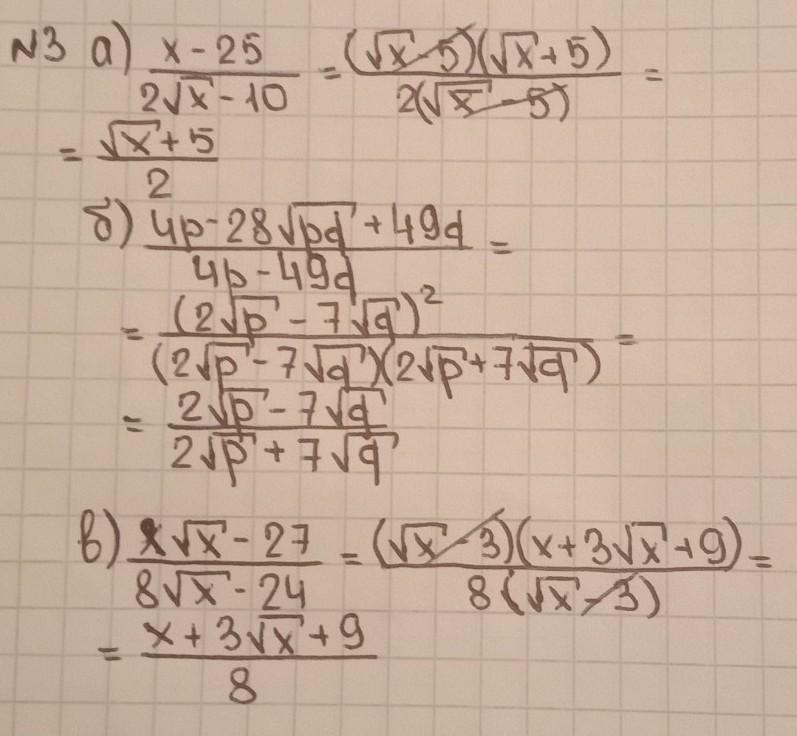 №3 а) (x - 25)/(2√x - 10) = ((√x - 5)(√x + 5))/(2(√x - 5)) =
= (√x + 5)/2
б) (4p - 28√pq + 49q)/(4p - 49q) =
= (2√p - 7√q)²/((2√p - 7√q)(2√p + 7√q)) =
= (2√p - 7√q)/(2√p + 7√q)
в) (x√x - 27)/(8√x - 24) = ((√x - 3)(x + 3√x + 9))/(8(√x - 3)) =
= (x + 3√x + 9)/8